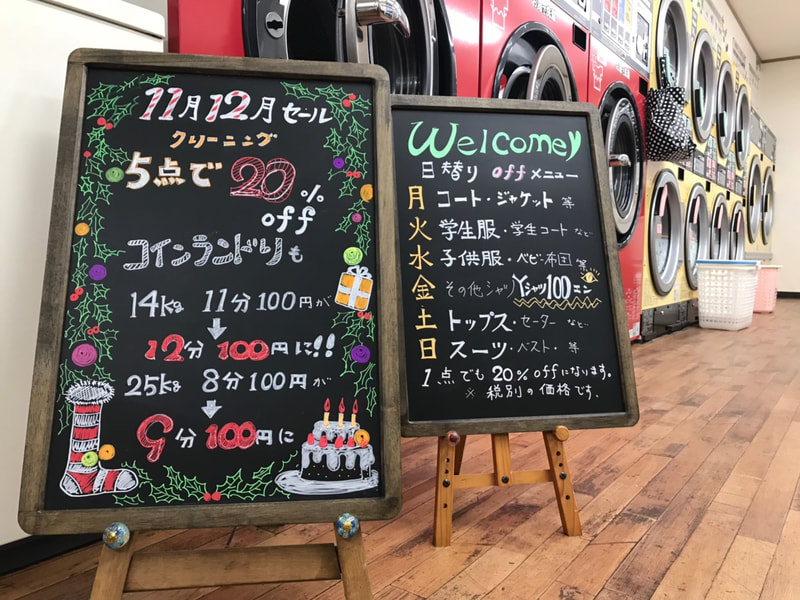 11月12月セール
クリーニング
5点で20%
off
コインランドリーも
14kg 11分100円が
↓
12分100円に!!
25kg 8分100円が
↓
9分100円に
Welcome
日替り offメニュー
月 コート・ジャケット 等
火 学生服・学生コート など
水 子供服・ベビー布団 等
金 その他シャツ Yシャツ100ミエン
土 トップス・セーター など
日 スーツ・ベスト・等
1点でも20%offになります。
※税別の価格です。